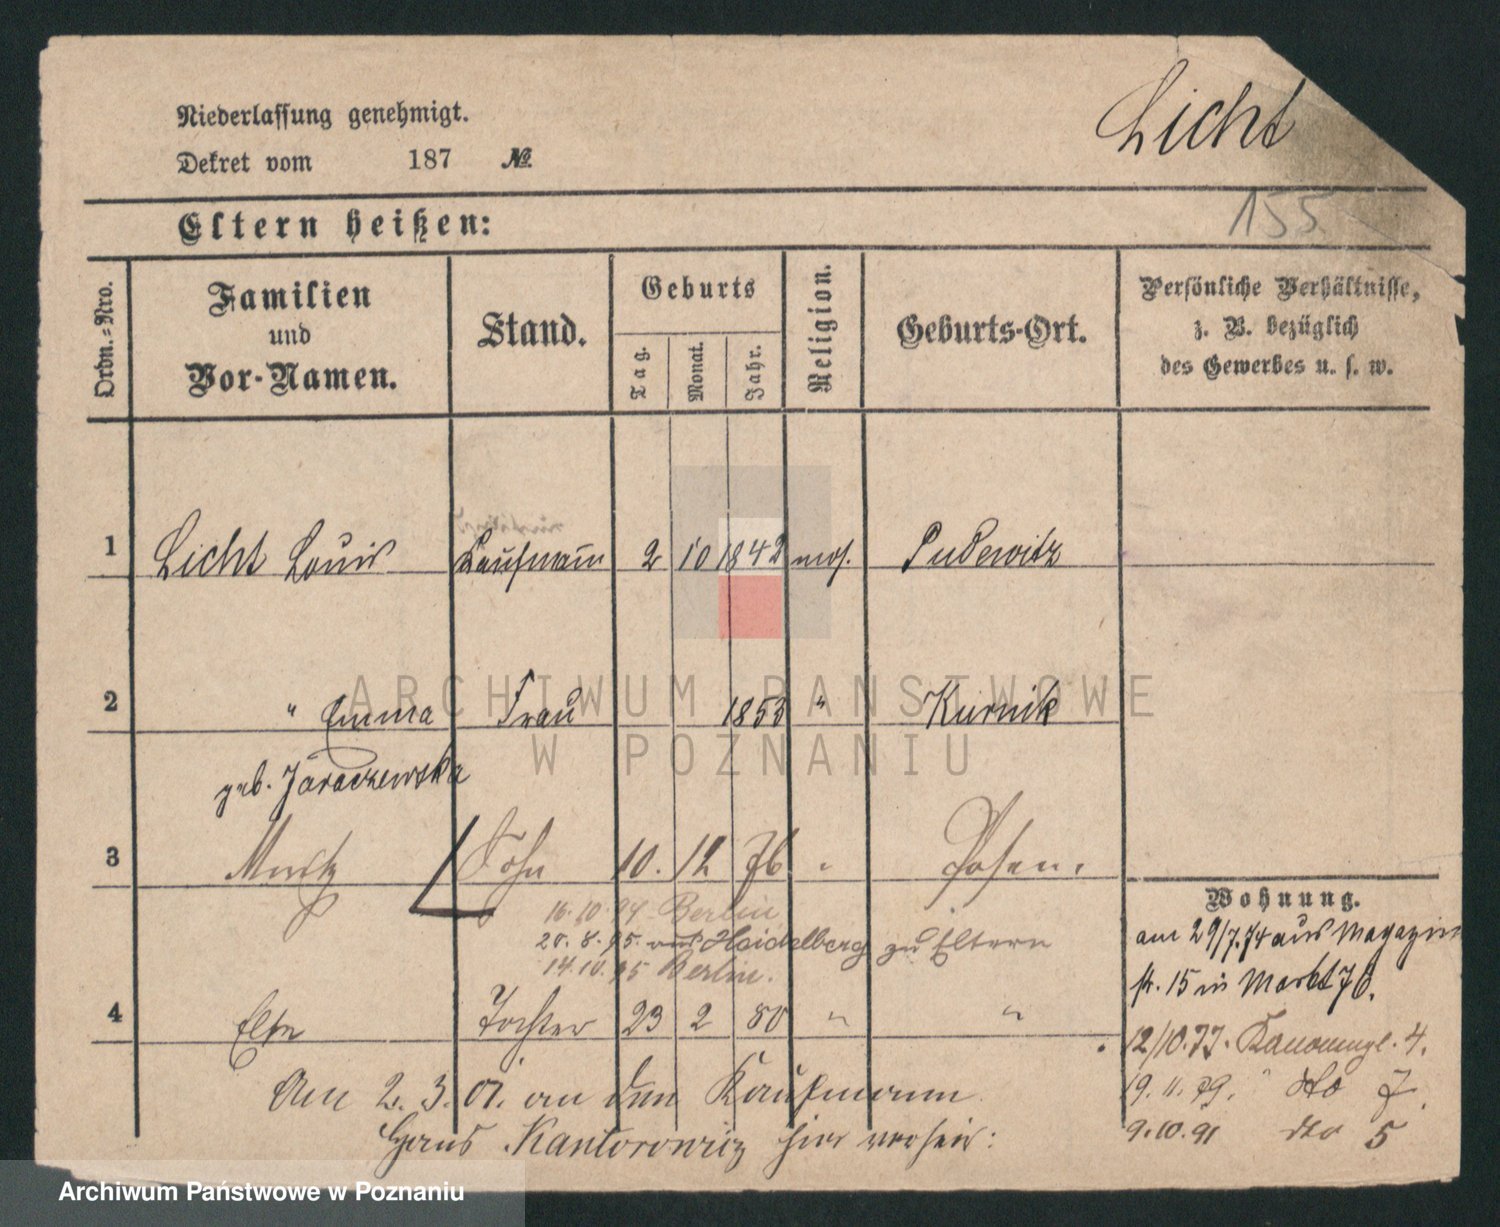 Licht
Niederlassung genehmigt.
Dekret vom 187 №
155
Eltern heißen:
Ordn.=Nro.
Familien und Vor-Namen.
Stand.
Geburts
Tag.
Monat.
Jahr.
Religion.
Geburts-Ort.
Persönliche Verhältnisse,
z. B. bezüglich
des Gewerbes u. s. w.
1 Licht Louis Kaufmann 2 10 1842 mos. Pudewitz
2 " Emma Frau 1853 " Kurnik
geb. Jaraczewska
3 Moritz Sohn 10. 12 76 " Posen.
16.10.94 Berlin
20.8.95. aus Heidelberg zu Eltern
14.10.95 Berlin.
4 Else Tochter 23 2 80 " "
Am 2.3.01. an den Kaufmann
Hans Kantorowicz hier verheir:
Wohnung.
am 29/7.74 aus Magazin
str. 15 in Markt 76.
12/10.77. Kanonenpl. 4.
19.11.79. " dto 7.
9.10.91 dto 5
ARCHIWUM PAŃSTWOWE
W POZNANIU
Archiwum Państwowe w Poznaniu